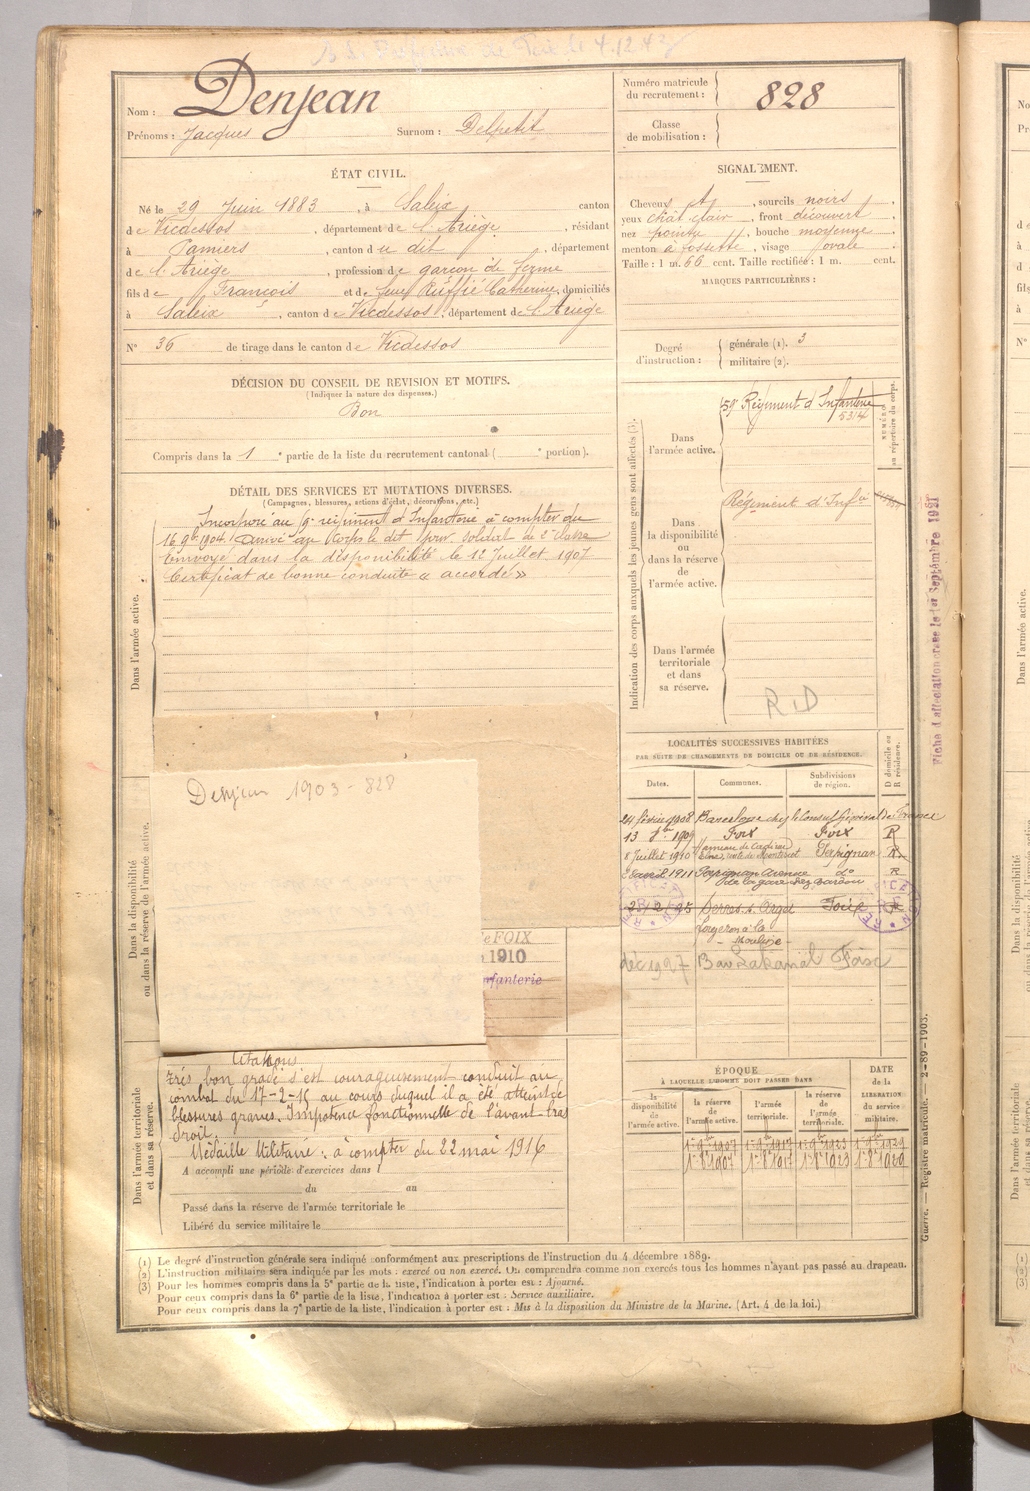 Denjean
Nom :
Prénoms : Jacques Surnom : Delpetit
Numéro matricule
du recrutement : 828
Classe
de mobilisation :
ÉTAT CIVIL.
Né le 29 Juin 1883, à Saleix canton
de Vicdessos, département de l'Ariège, résidant
à Pamiers, canton du dit, département
de l'Ariège, profession de garçon de ferme
fils de François et de feue Ruffié Catherine, domiciliés
à Saleix, canton de Vicdessos, département de l'Ariège
N° 36 de tirage dans le canton de Vicdessos
SIGNALEMENT.
Cheveux , sourcils noirs,
yeux chât clair, front découvert,
nez pointu, bouche moyenne,
menton à fossette, visage ovale.
Taille : 1 m. 66 cent. Taille rectifiée : 1 m. cent.
MARQUES PARTICULIÈRES :
Degré
d'instruction :
générale (1). 3
militaire (2).
DÉCISION DU CONSEIL DE REVISION ET MOTIFS.
(Indiquer la nature des dispenses.)
Bon
Compris dans la 1e partie de la liste du recrutement cantonal ( e portion).
DÉTAIL DES SERVICES ET MUTATIONS DIVERSES.
(Campagnes, blessures, actions d'éclat, décorations, etc.)
Incorporé au régiment d'Infanterie à compter du
16 9bre 1904. Arrivé au Corps le dit jour soldat de 2e classe
Envoyé dans la disponibilité le 12 Juillet 1907
Certificat de bonne conduite « accordé »
Dans l'armée active.
Dans la disponibilité
ou dans la réserve de l'armée active.
Dans l'armée territoriale
et dans sa réserve.
Indication des corps auxquels les jeunes gens sont affectés (3).
Dans
l'armée active.
59e Régiment d'Infanterie
5314
NUMÉRO
au répertoire du corps.
Dans
la disponibilité
ou
dans la réserve
de
l'armée active.
Régiment d'Infie
Dans l'armée
territoriale
et dans
sa réserve.
R D
Fiche d'affectation créée le 1er Septembre 1921
Denjean 1903 - 828
de FOIX
1910
Infanterie
LOCALITÉS SUCCESSIVES HABITÉES
PAR SUITE DE CHANGEMENTS DE DOMICILE OU DE RÉSIDENCE.
D domicile ou
R résidence.
Dates. Communes. Subdivisions
de région.
24 février 1908 Barcelone chez le Consul Général de France
13 8bre 1909 Foix Foix R
8 Juillet 1910 Perpignan R
avril 1911 Perpignan Avenue do R
de la gare chez
Serres s. Arget Foix R
forgeron à la
Mouline
déc 1927 Foix
Citations
très bon gradé s'est courageusement conduit au
combat du 17-2-15 au cours duquel il a été atteint de
blessures graves. Impotence fonctionnelle de l'avant-bras
droit.
Médaille Militaire : à compter du 22 mai 1916
A accompli une période d'exercices dans l
du au
Passé dans la réserve de l'armée territoriale le
Libéré du service militaire le
ÉPOQUE
À LAQUELLE L'HOMME DOIT PASSER DANS
DATE
de la
LIBÉRATION
du service
militaire.
la
disponibilité
de l'armée active.
la réserve
de
l'armée active.
l'armée
territoriale.
la réserve
de
l'armée
territoriale.
1er 9bre 1907 1er 9bre 1917 1er 9bre 1923 1er 9bre 1929
1er 8bre 1907 1er 8bre 1917 1er 8bre 1923 1er 8bre 1929
Guerre. — Registre matricule. 2-89-1903.
(1) Le degré d'instruction générale sera indiqué conformément aux prescriptions de l'instruction du 4 décembre 1889.
(2) L'instruction militaire sera indiquée par les mots : exercé ou non exercé. On comprendra comme non exercés tous les hommes n'ayant pas passé au drapeau.
(3) Pour les hommes compris dans la 5e partie de la liste, l'indication à porter est : Ajourné.
Pour ceux compris dans la 6e partie de la liste, l'indication à porter est : Service auxiliaire.
Pour ceux compris dans la 7e partie de la liste, l'indication à porter est : Mis à la disposition du Ministre de la Marine. (Art. 4 de la loi.)